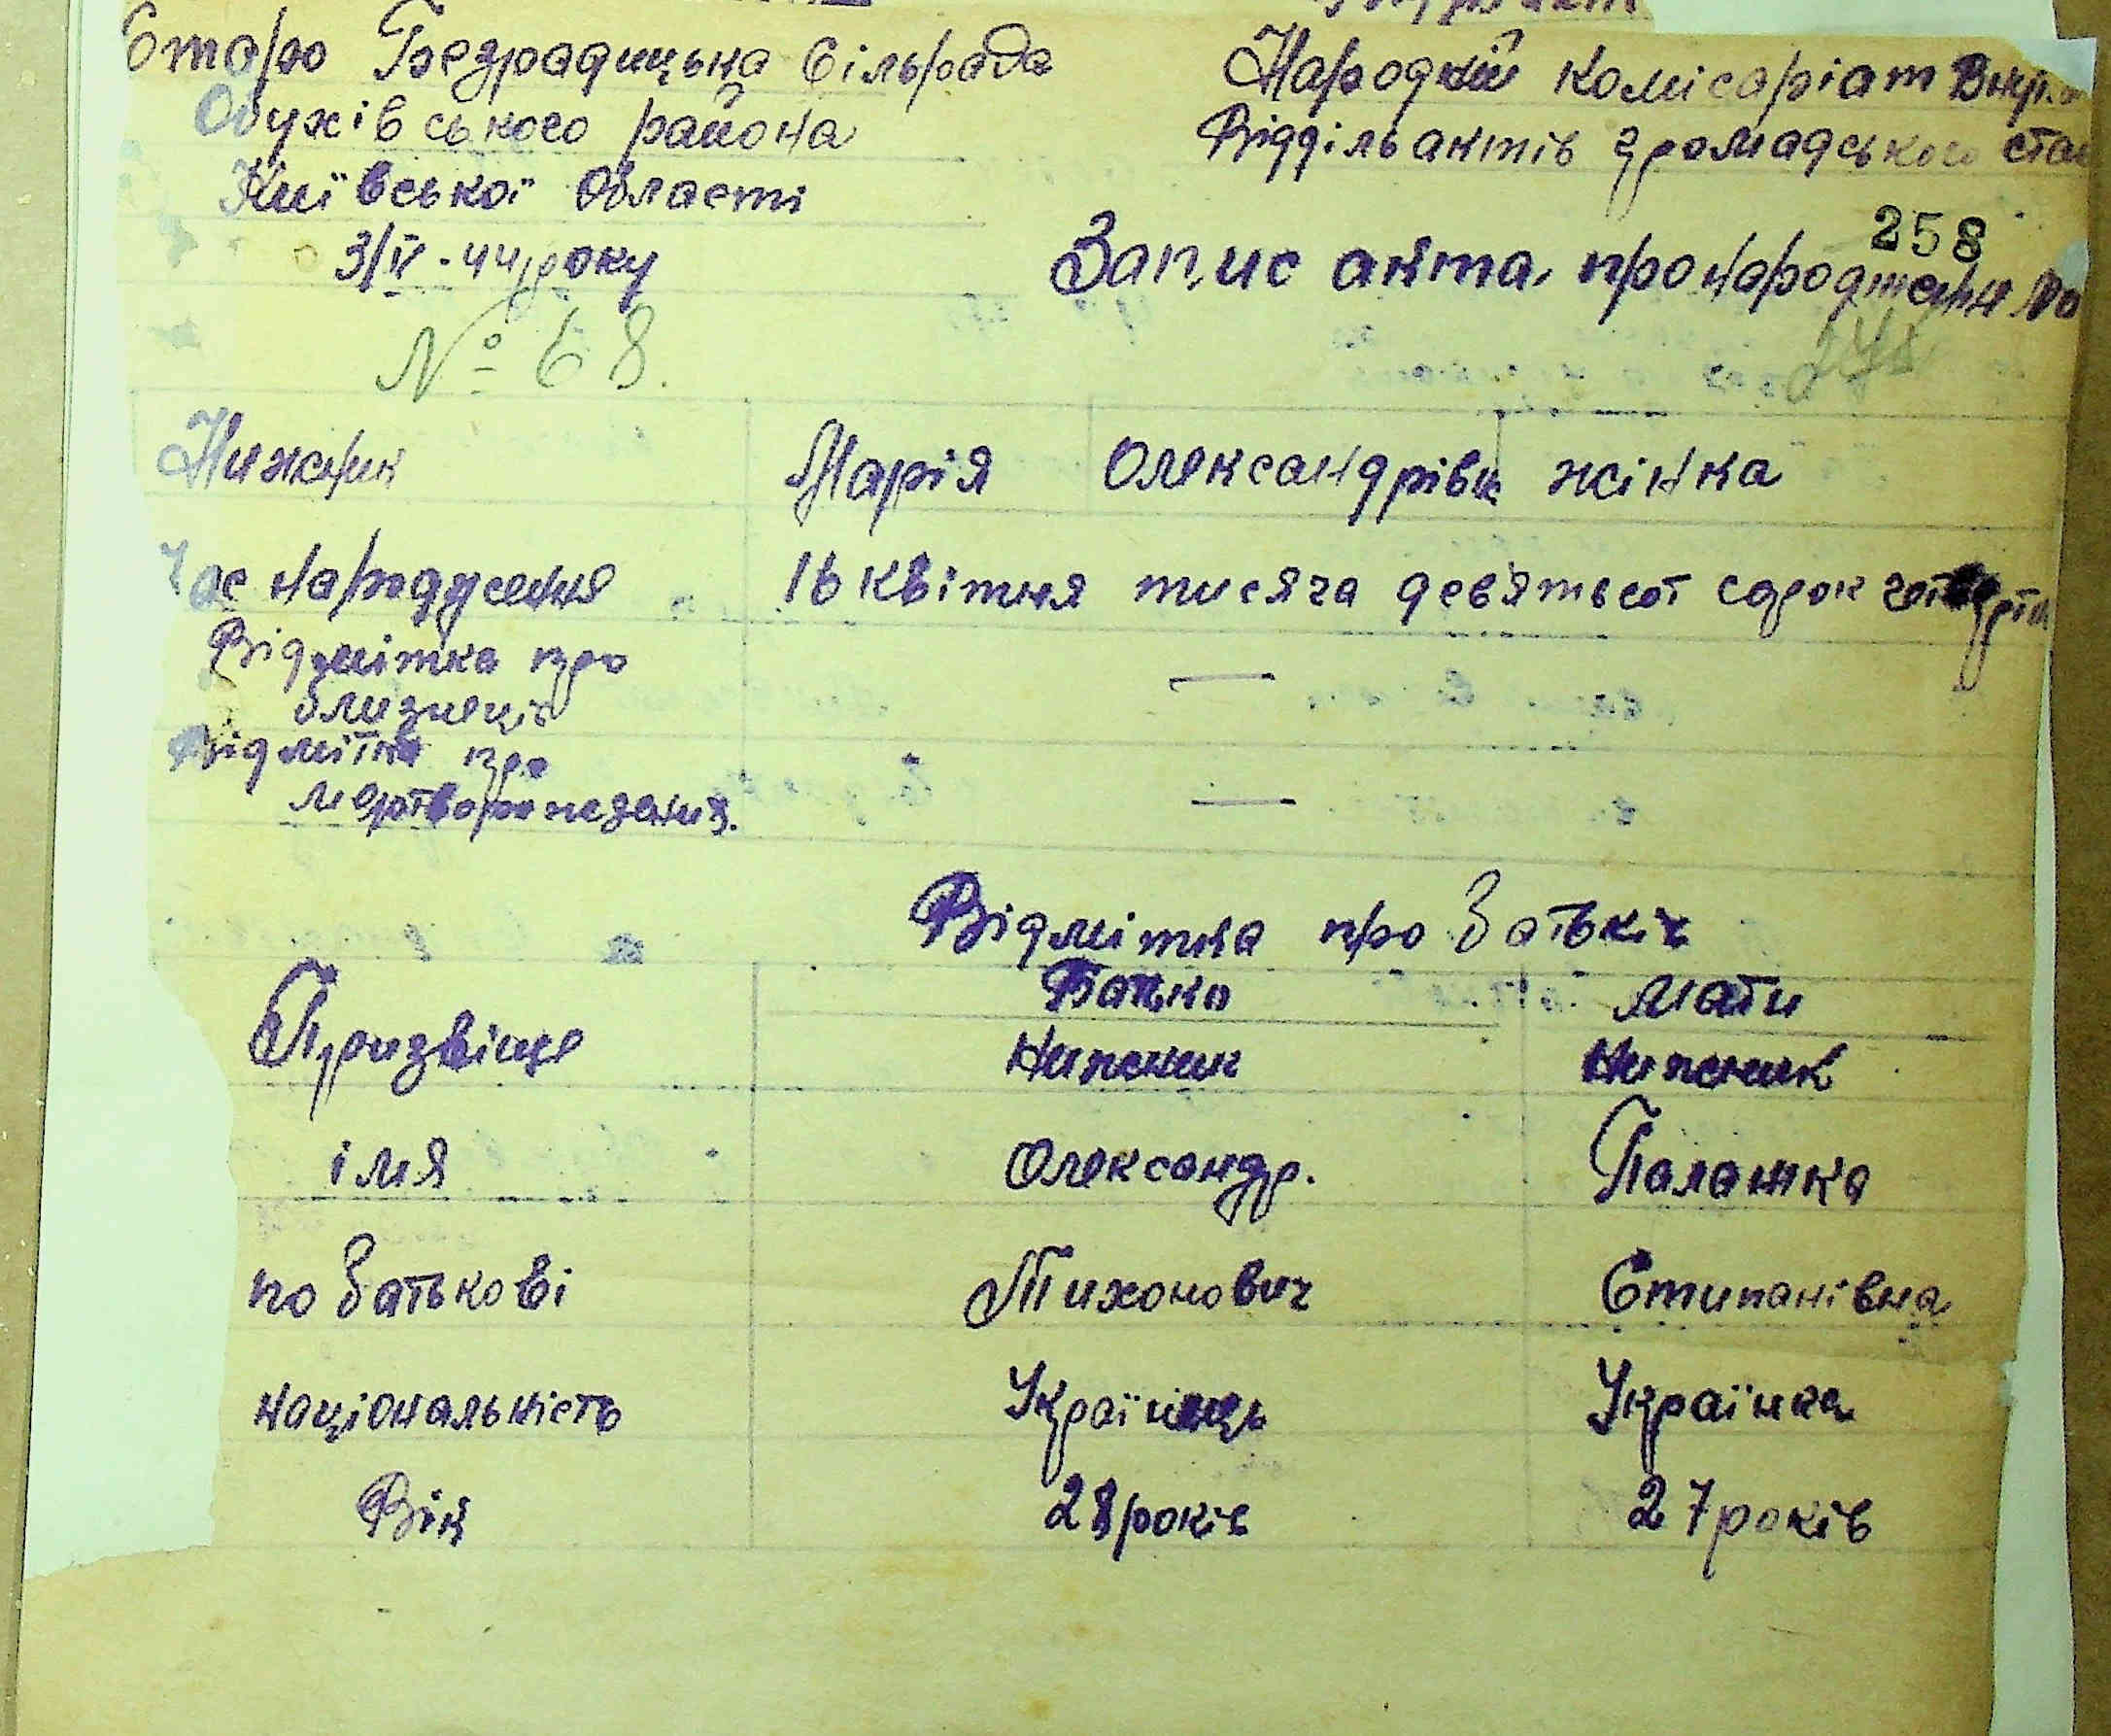 Старо Безрадицька Сільрада
Обухівського района
Київської Області
3/V-44 року
№ 68.
Народкій комісаріат Внут
Віддільактів громадського стан
258
Запис акта, про народження №
Нижник Марія Олександрівн жінка
Час народження 16 квітня тисяча девятьсот сорок
Відмітка про близнеців —
Відмітка про мертворождення. —
Відмітка про батьків
Батько Мати
Призвіще Нижник Нижник
імя Олександр. Палажка
по батькові Тихонович Стипанівна
національність Українець Українка
Вік 28 років 27 років